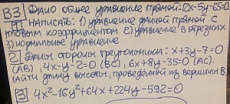 В3 Дано общее уравнение прямой: 2x-5y-65=0.
1 Написать: 1) уравнение данной прямой с
угловым коэффициентом 2) уравнение в отрезках
3) нормальное уравнение
2 Даны стороны треугольника: x+3y-7=0
(AB), 4x-y-2=0 (BC), 6x+8y-35=0 (AC).
Найти длину высоты, проведённой из вершины B.
3 4x²-16y²+4x+224y-592=0